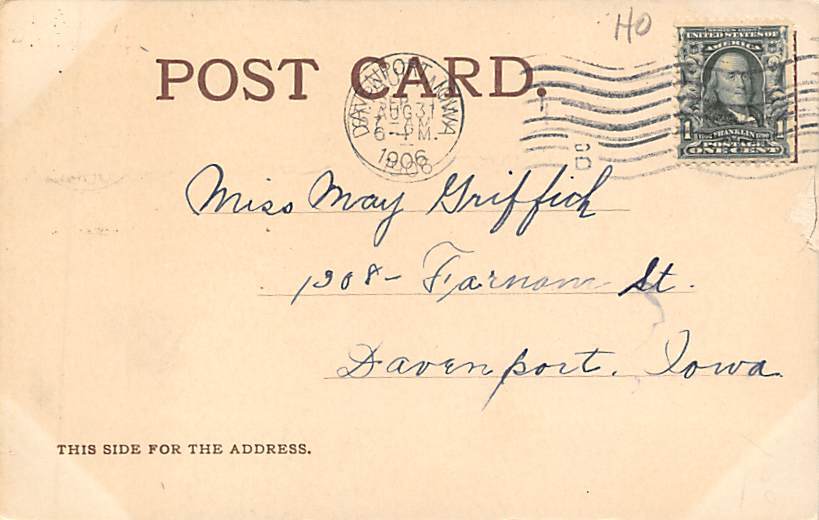 HO
POST CARD.
DAVENPORT, IOWA
AUG 31
6 - PM.
1906
SERIES 1902
UNITED STATES OF
AMERICA
1 FRANKLIN 1
POSTAGE
ONE CENT
Miss May Griffith
1308 - Farnam St.
Davenport, Iowa.
THIS SIDE FOR THE ADDRESS.